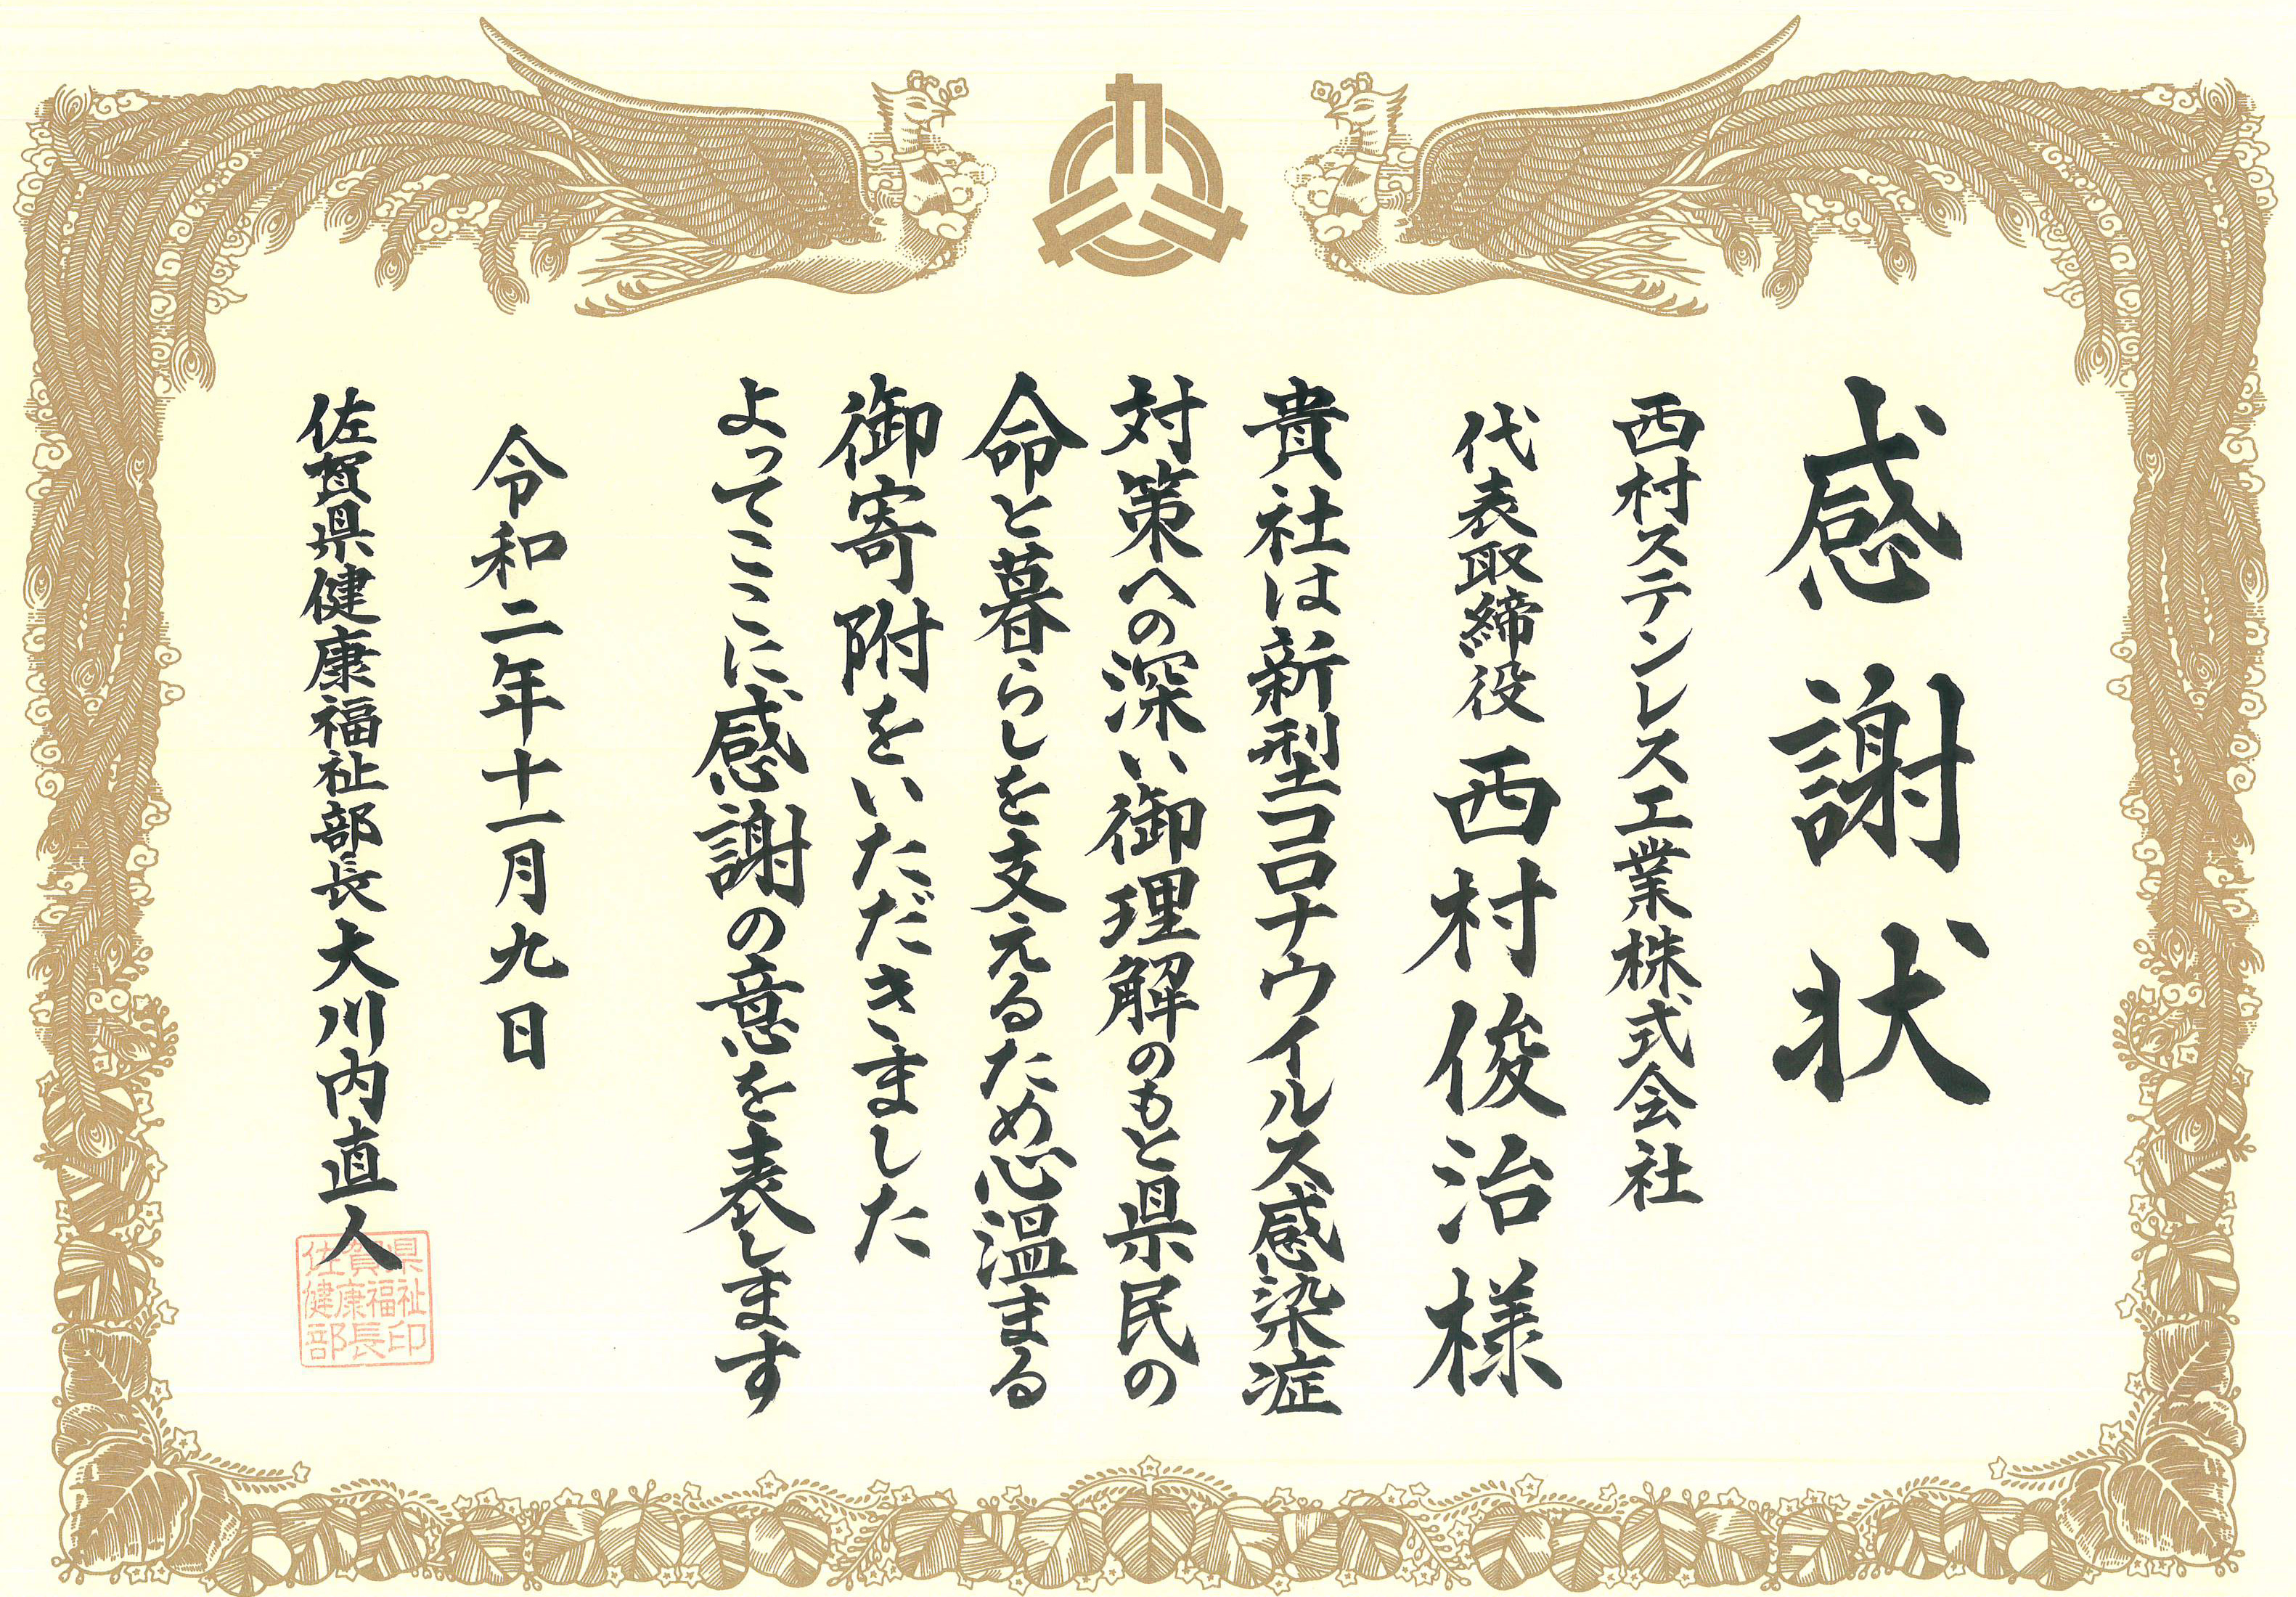 感謝状
西村ステンレス工業株式会社
代表取締役 西村俊治様
貴社は新型コロナウイルス感染症
対策への深い御理解のもと県民の
命と暮らしを支えるため心温まる
御寄附をいただきました
よってここに感謝の意を表します
令和二年十一月九日
佐賀県健康福祉部長 大川内直人
佐賀県
健康福祉
部長印